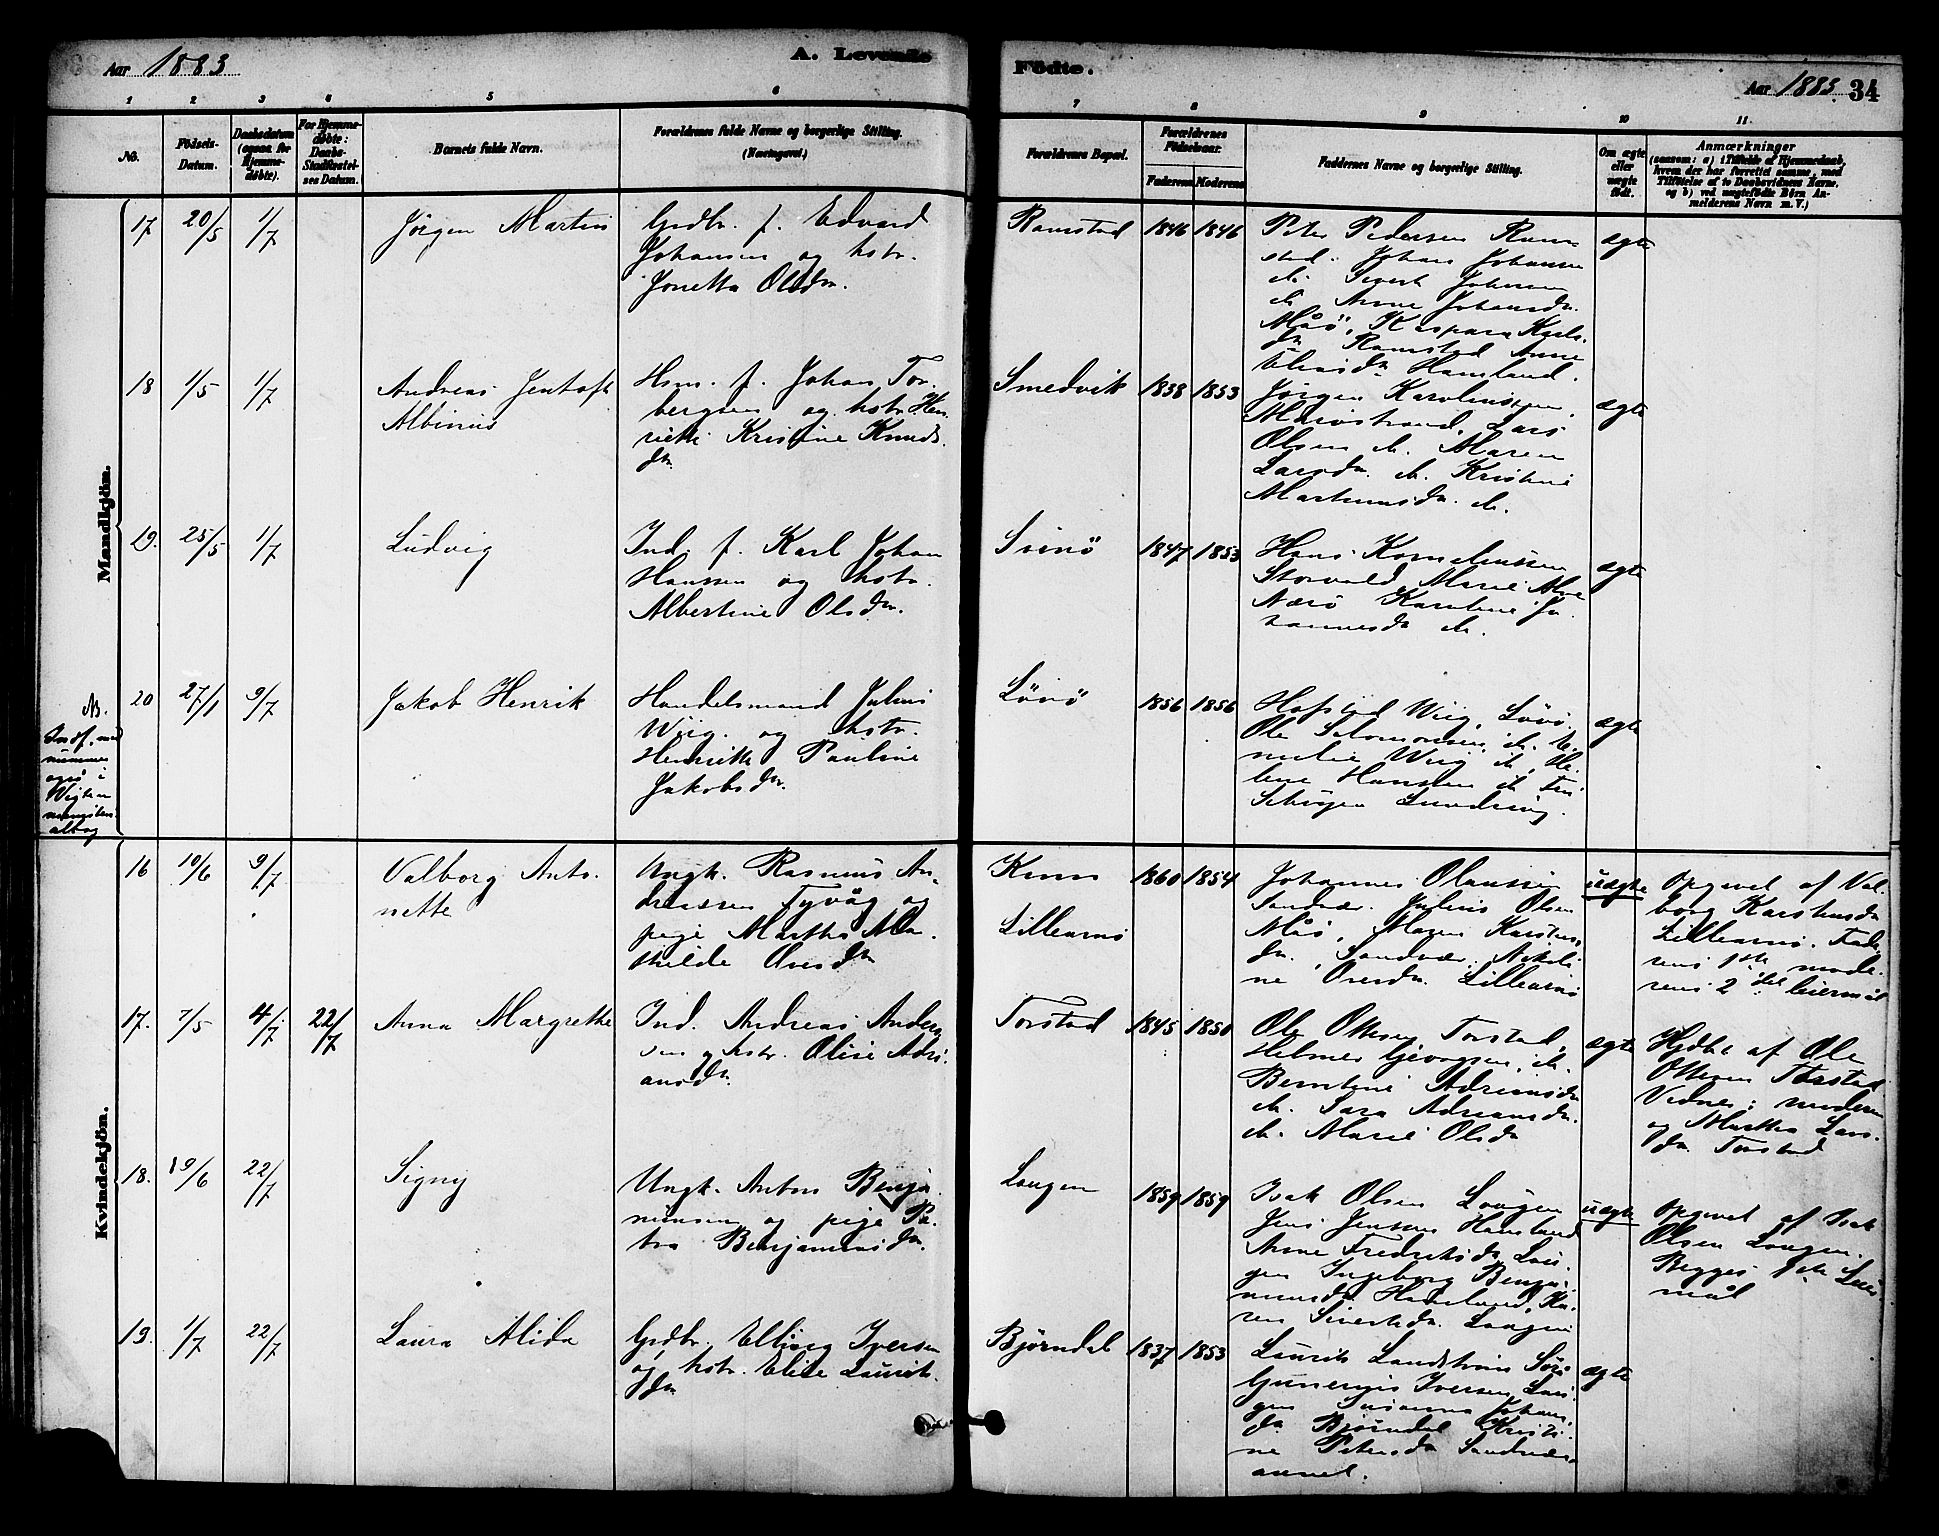 Aar 1883
A. Levende
Födte.
Aar 1883. 34
1 2 3 4 5 6 7 8 9 10 11.
No.
Födsels-
Datum.
Daabsdatum
(ogsaa for
Hjemme-
döbte).
For Hjemme-
döbte:
Daabs-
Stadfæstel-
ses Datum.
Barnets fulde Navn.
Forældrenes fulde Navne og borgerlige Stilling.
(Næringsvei.)
Forældrenes Bopæl.
Forældrenes
Födselsaar.
Faderens Moderens
Faddernes Navne og borgerlige Stilling.
Om ægte
eller
uægte
födt.
Anmærkninger
(saasom: a) i Tilfælde af Hjemmedaab,
hvem der har forrettet samme, med
Tilföielse af to Daabsvidners Navne,
og b) ved uægtefödte Börn An-
melderens Navn m. V.)
Mandkjön.
17 20/5 1/7
Jørgen Martin
Grdbr. f. Edvard
Johansen og hstr.
Jonetta Olsdr.
Ramstad
1846 1846
Peter Pedersen Ram-
stad. Johan Johansen
do. Sivert Johnsen
do. Anne Johansdr.
Måsö, Kaspara Karls-
dr. Ramstad Anne
Eliasdr. Hamland.
ægte
18 1/5 1/7
Andreas Jentoft
Albinus
Hsm. f. Johan Tor-
bergsen og hstr. Hen-
riette Kristine Knuds-
dr.
Smedvik
1838 1853
Jörgen Karolinssen,
Maröstrand, Lars
Olsen do. Maren
Larsdr. do. Kristine
Martinusdr. do.
ægte
19. 25/5 1/7
Ludvig
Ind. f. Karl Johan
Hansen og hstr.
Albertine Olsdr.
Svinö
1847 1853
Hans Korneliussen
Storvold, Marie Moe
Nærö Karoline Jo-
hannesdr. do.
ægte
NB.
Indf. med
nummer
også i
Wigten
menigheds
20 27/1 9/7
Jakob Henrik
Handelsmand Julius
Wiig. og hstr.
Henriette Pauline
Jakobsdr.
Lövö
1856 1856
Hofstad Wiig, Lövö.
Ole Salomonsen, do. E-
melie Wiig do, He-
lene Hansen do
Lundring.
ægte
Kvindekjön.
16 10/6 9/7
Valborg Anto-
nette
Ungk. Rasmus An-
dreassen Tyvåg og
pige Martha Ma-
thilde Ovesdr.
Kvam
Lillearnö
1860 1854
Johannes Olaussen
Sandvær. Julius Olsen
Måsö, Maren Karstens-
dr. Sandvær. Nikoli-
ne Ovesdr. Lillearnö
uægte
Opgivet af Val-
borg Karstensdr.
Lillearnö. Fade-
rens 1ste mode-
rens 2det leiermål
17. 7/5 4/7 22/7
Anna Margrethe
Ind. Andreas Ander-
sen og hstr. Olise Adri-
ansdr.
Torstad
1845 1850
Ole Ottesen Torstad,
Helmer Georgsen, do.
Berntine Adriansdr.
do. Sara Adriansdr.
do. Marie Olsdr.
ægte
Hjdbt. af Ole
Ottesen Torstad
Vidner: moderen
og Martha Lars-
dr. Torstad
18. 19/6 22/7
Signy
Ungk. Anton Benja-
minsen og pige Pe-
tra Benjaminsdr.
Laugen
1859 1859
Isak Olsen Laugen
Jens Jensen Hamland
Anne Fredriksdr. Lau-
gen Ingeborg Benja-
minsdr. Hamland, Ka-
ren Sivertsdr. Laugen
uægte
Opgivet af Isak
Olsen Laugen.
Begges 1ste Leier-
mål
19. 1/7 22/7
Laura Alida
Grdbr. Elling Iversen
og hstr. Elise Laurits-
dr.
Björndal
1837 1853
Laurits Landstrøm
Iversen, Lau-
gen Susanna Johans-
dr. Björndal Kristi-
ne Petersdr. Sandvær-
ægte